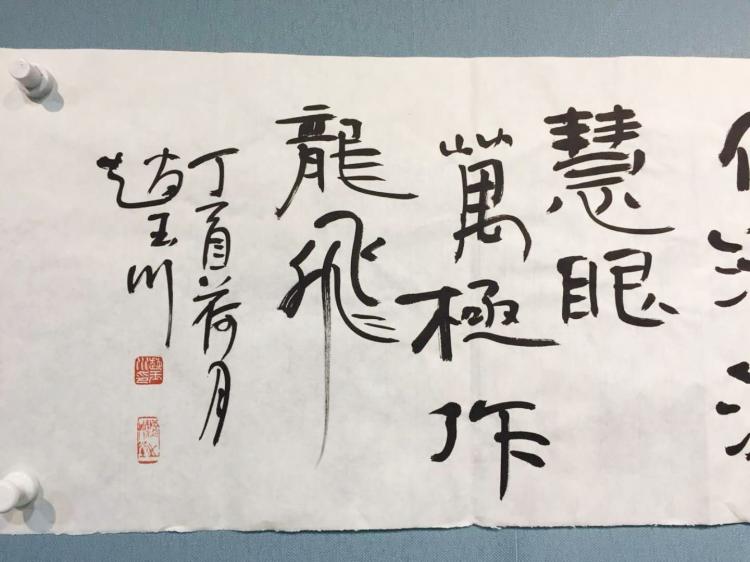 慧眼
萬極作
龍飛
丁酉荷月
趙玉川